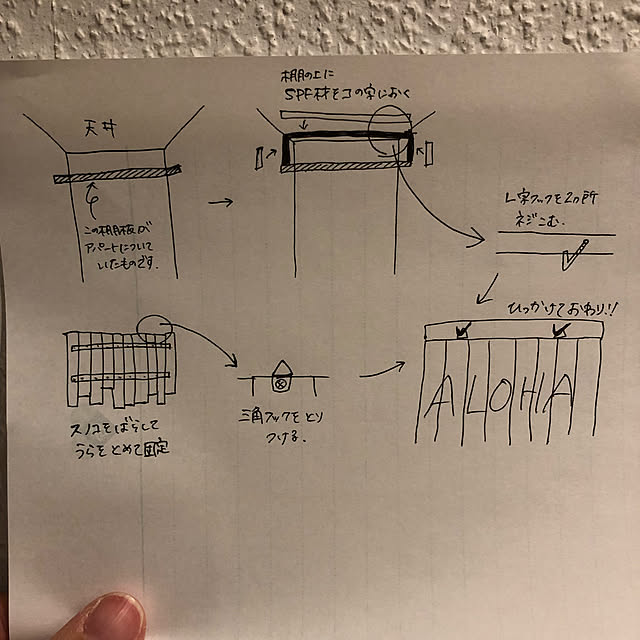 天井
この棚板が
アパートについて
いたものです.
棚の上に
SPF材をコの字におく
L字フックを2ヵ所
ネジこむ.
スノコをばらして
うらをとめて固定
三角フックをとり
つける.
ひっかけておわり!!
ALOHA